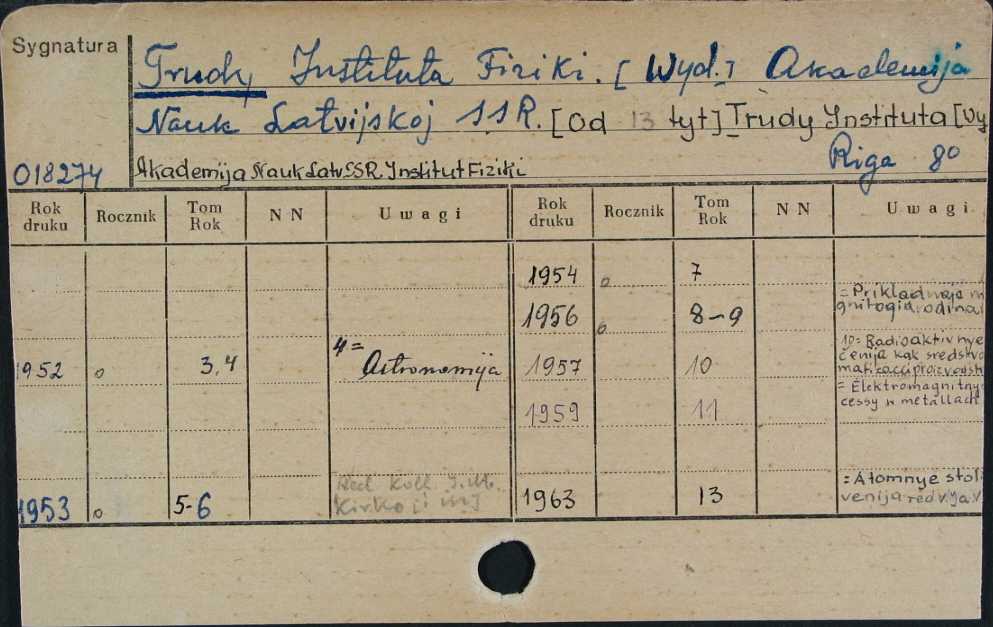 Sygnatura
Trudy Instituta Fiziki. [Wyd.] Akademija
Nauk Latvijskoj SSR. [Od 13 tyt] Trudy Instituta [Wy
Riga 8°
018274
Akademija Nauk Latv. SSR. Institut Fiziki
Rok druku Rocznik Tom Rok NN Uwagi Rok druku Rocznik Tom Rok NN Uwagi
1954 o 7
= Prikladnaja
1956 o 8-9
10 = Radioaktivnye
1952 o 3,4 4 = Astronomija 1957 10
čenija kak sredstvo
= Elektromagnitny
1959 11
cessy w metallach
Red. Koll. I. M.
Kirko [i inj
1953 o 5-6 1963 13
= Atomnye stol
venija red V. Ja. V